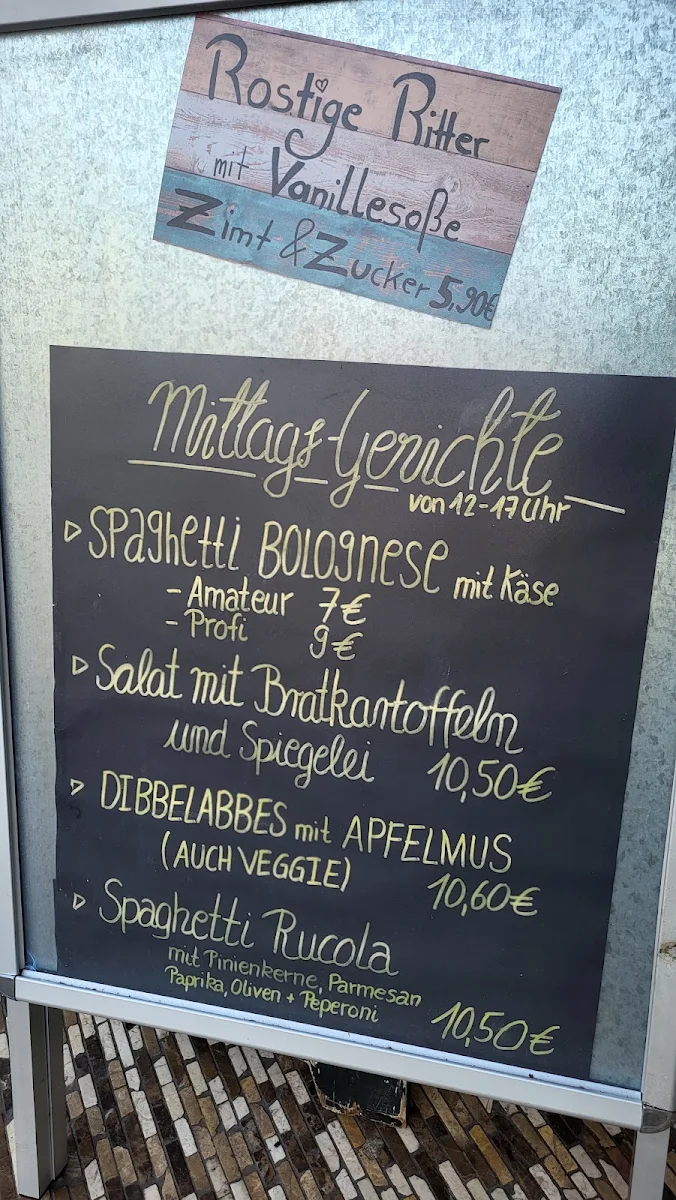 Rostige Ritter
mit Vanillesoße
Zimt & Zucker 5,90€
Mittags-Gerichte
von 12-17 Uhr
▷ Spaghetti BOLOGNESE mit Käse
- Amateur 7€
- Profi 9€
▷ Salat mit Bratkartoffeln
und Spiegelei 10,50€
▷ DIBBELABBES mit APFELMUS
(AUCH VEGGIE) 10,60€
▷ Spaghetti Rucola
mit Pinienkerne, Parmesan
Paprika, Oliven + Peperoni 10,50€